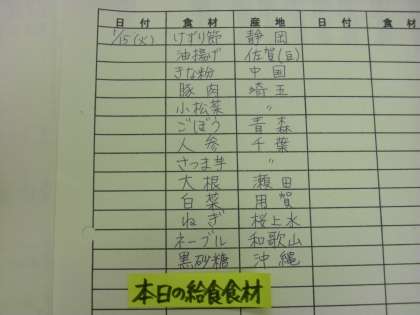 日付 食材 産地 日付 食材
1/15(火) けずり節 静岡
油揚げ 佐賀(豆)
きな粉 中国
豚肉 埼玉
小松菜 〃
ごぼう 青森
人参 千葉
さつま芋 〃
大根 瀬田
白菜 用賀
ねぎ 桜上水
ネーブル 和歌山
黒砂糖 沖縄
本日の給食食材